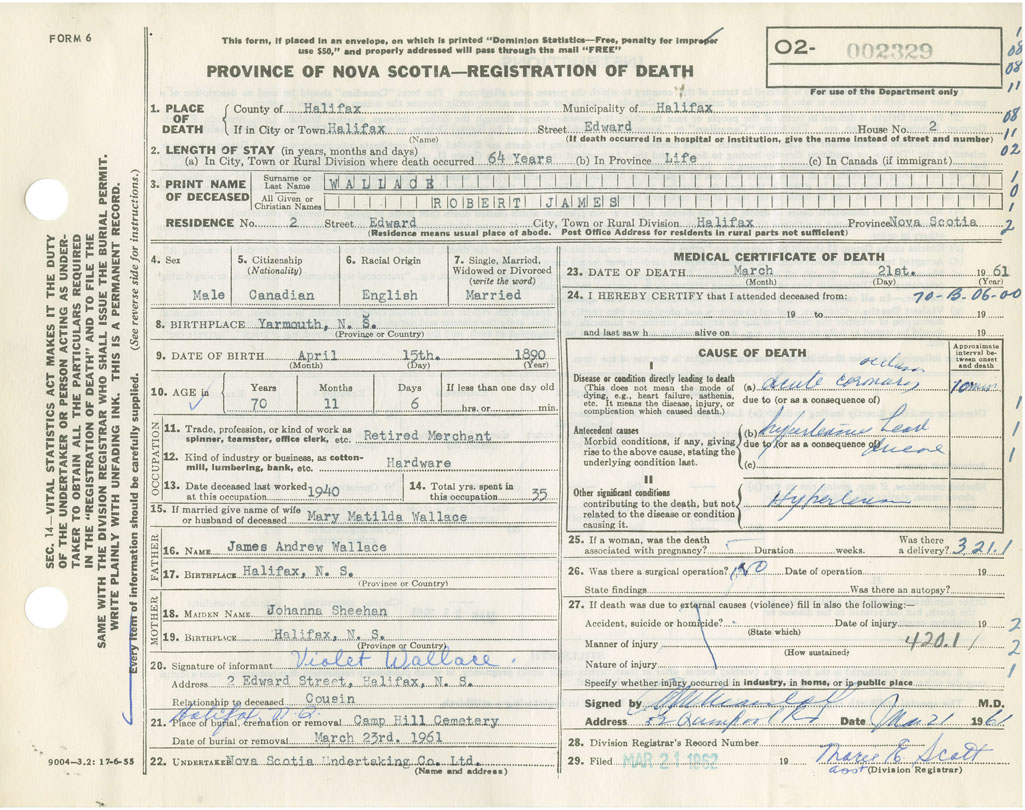 FORM 6
This form, if placed in an envelope, on which is printed "Dominion Statistics—Free, penalty for improper
use $50," and properly addressed will pass through the mail "FREE"
PROVINCE OF NOVA SCOTIA—REGISTRATION OF DEATH
02- 002329
For use of the Department only
1. PLACE OF DEATH { County of Halifax Municipality of Halifax
If in City or Town Halifax Street Edward House No. 2
(Name) (If death occurred in a hospital or institution, give the name instead of street and number)
2. LENGTH OF STAY (in years, months and days)
(a) In City, Town or Rural Division where death occurred 64 Years (b) In Province Life (c) In Canada (if immigrant)
3. PRINT NAME OF DECEASED Surname or Last Name WALLACE
All Given or Christian Names ROBERT JAMES
RESIDENCE No. 2 Street Edward City, Town or Rural Division Halifax Province Nova Scotia
(Residence means usual place of abode. Post Office Address for residents in rural parts not sufficient)
4. Sex Male
5. Citizenship (Nationality) Canadian
6. Racial Origin English
7. Single, Married, Widowed or Divorced (write the word) Married
8. BIRTHPLACE Yarmouth, N. S.
(Province or Country)
9. DATE OF BIRTH April 15th. 1890
(Month) (Day) (Year)
10. AGE in Years Months Days If less than one day old
70 11 6 hrs. or min.
OCCUPATION
11. Trade, profession, or kind of work as spinner, teamster, office clerk, etc. Retired Merchant
12. Kind of industry or business, as cotton-mill, lumbering, bank, etc. Hardware
13. Date deceased last worked at this occupation 1940
14. Total yrs. spent in this occupation 35
15. If married give name of wife or husband of deceased Mary Matilda Wallace
FATHER
16. NAME James Andrew Wallace
17. BIRTHPLACE Halifax, N. S.
(Province or Country)
MOTHER
18. MAIDEN NAME Johanna Sheehan
19. BIRTHPLACE Halifax, N. S.
(Province or Country)
20. Signature of informant Violet Wallace.
Address 2 Edward Street, Halifax, N. S.
Relationship to deceased Cousin
Halifax N.S.
21. Place of burial, cremation or removal Camp Hill Cemetery
Date of burial or removal March 23rd. 1961
22. UNDERTAKER Nova Scotia Undertaking Co. Ltd.
(Name and address)
9004—3,2: 17-6-55
MEDICAL CERTIFICATE OF DEATH
23. DATE OF DEATH March 21st. 1961
(Month) (Day) (Year)
24. I HEREBY CERTIFY that I attended deceased from:
70-B-06-00
19 to 19
and last saw h alive on 19
CAUSE OF DEATH
Approximate interval between onset and death
I
Disease or condition directly leading to death
(This does not mean the mode of dying, e.g., heart failure, asthenia, etc. It means the disease, injury, or complication which caused death.)
(a) acute coronary occlusion
due to (or as a consequence of)
Antecedent causes
Morbid conditions, if any, giving rise to the above cause, stating the underlying condition last.
(b)
due to (or as a consequence of)
(c)
II
Other significant conditions
contributing to the death, but not related to the disease or condition causing it.
25. If a woman, was the death associated with pregnancy? Duration weeks. Was there a delivery? 321.1
26. Was there a surgical operation? No Date of operation 19
State findings Was there an autopsy?
27. If death was due to external causes (violence) fill in also the following:—
Accident, suicide or homicide? Date of injury 19
(State which)
Manner of injury 420.1
(How sustained)
Nature of injury
Specify whether injury occurred in industry, in home, or in public place
Signed by M.D.
Address 52 Quinpool Rd Date Mar 21 1961
28. Division Registrar's Record Number
29. Filed MAR 21 1962 19 Marie E Scott
asst (Division Registrar)
SEC. 14—VITAL STATISTICS ACT MAKES IT THE DUTY
OF THE UNDERTAKER OR PERSON ACTING AS UNDER-
TAKER TO OBTAIN ALL THE PARTICULARS REQUIRED
IN THE "REGISTRATION OF DEATH" AND TO FILE THE
SAME WITH THE DIVISION REGISTRAR WHO SHALL ISSUE THE BURIAL PERMIT.
WRITE PLAINLY WITH UNFADING INK. THIS IS A PERMANENT RECORD.
Every item of information should be carefully supplied. (See reverse side for instructions.)